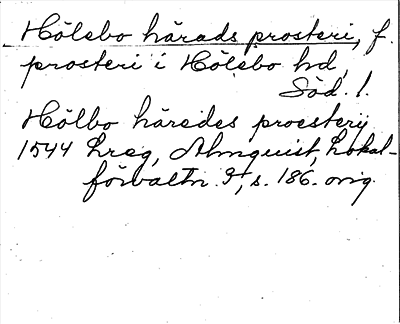 Hölebo härads prosteri, f.
prosteri i Hölebo hd,
Söd. l.
Hölbo häredes proestery
1544 Lreg, Almquist, Lokal-
förvaltn. 3, s. 186. orig.